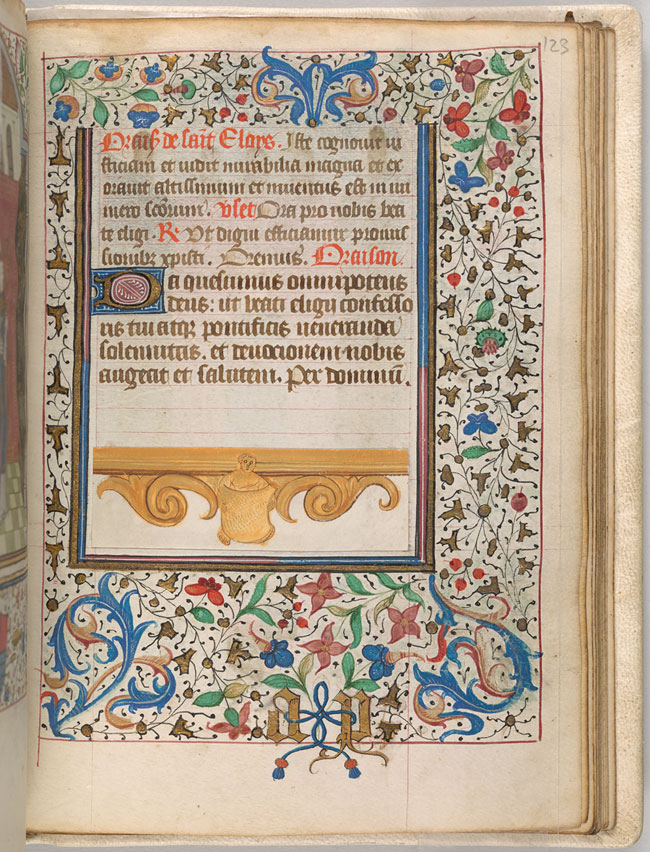 123
Orais de saīt Eloys. Iste cognovit iu
sticiam et vidit mirabilia magna et ex
oravit altissimum et inventus est in nu
mero scōrum. Vset Ora pro nobis bea
te eligi. R Ut digni efficiamur promis
sionibꝫ xp̄isti. Oremus. Oraison.
Da quesumus omnipotens
deus: ut beati eligii confesso
ris tui atqꝫ pontificis veneranda
solennitas. et devocionem nobis
augeat et salutem. Per dominū.
a p